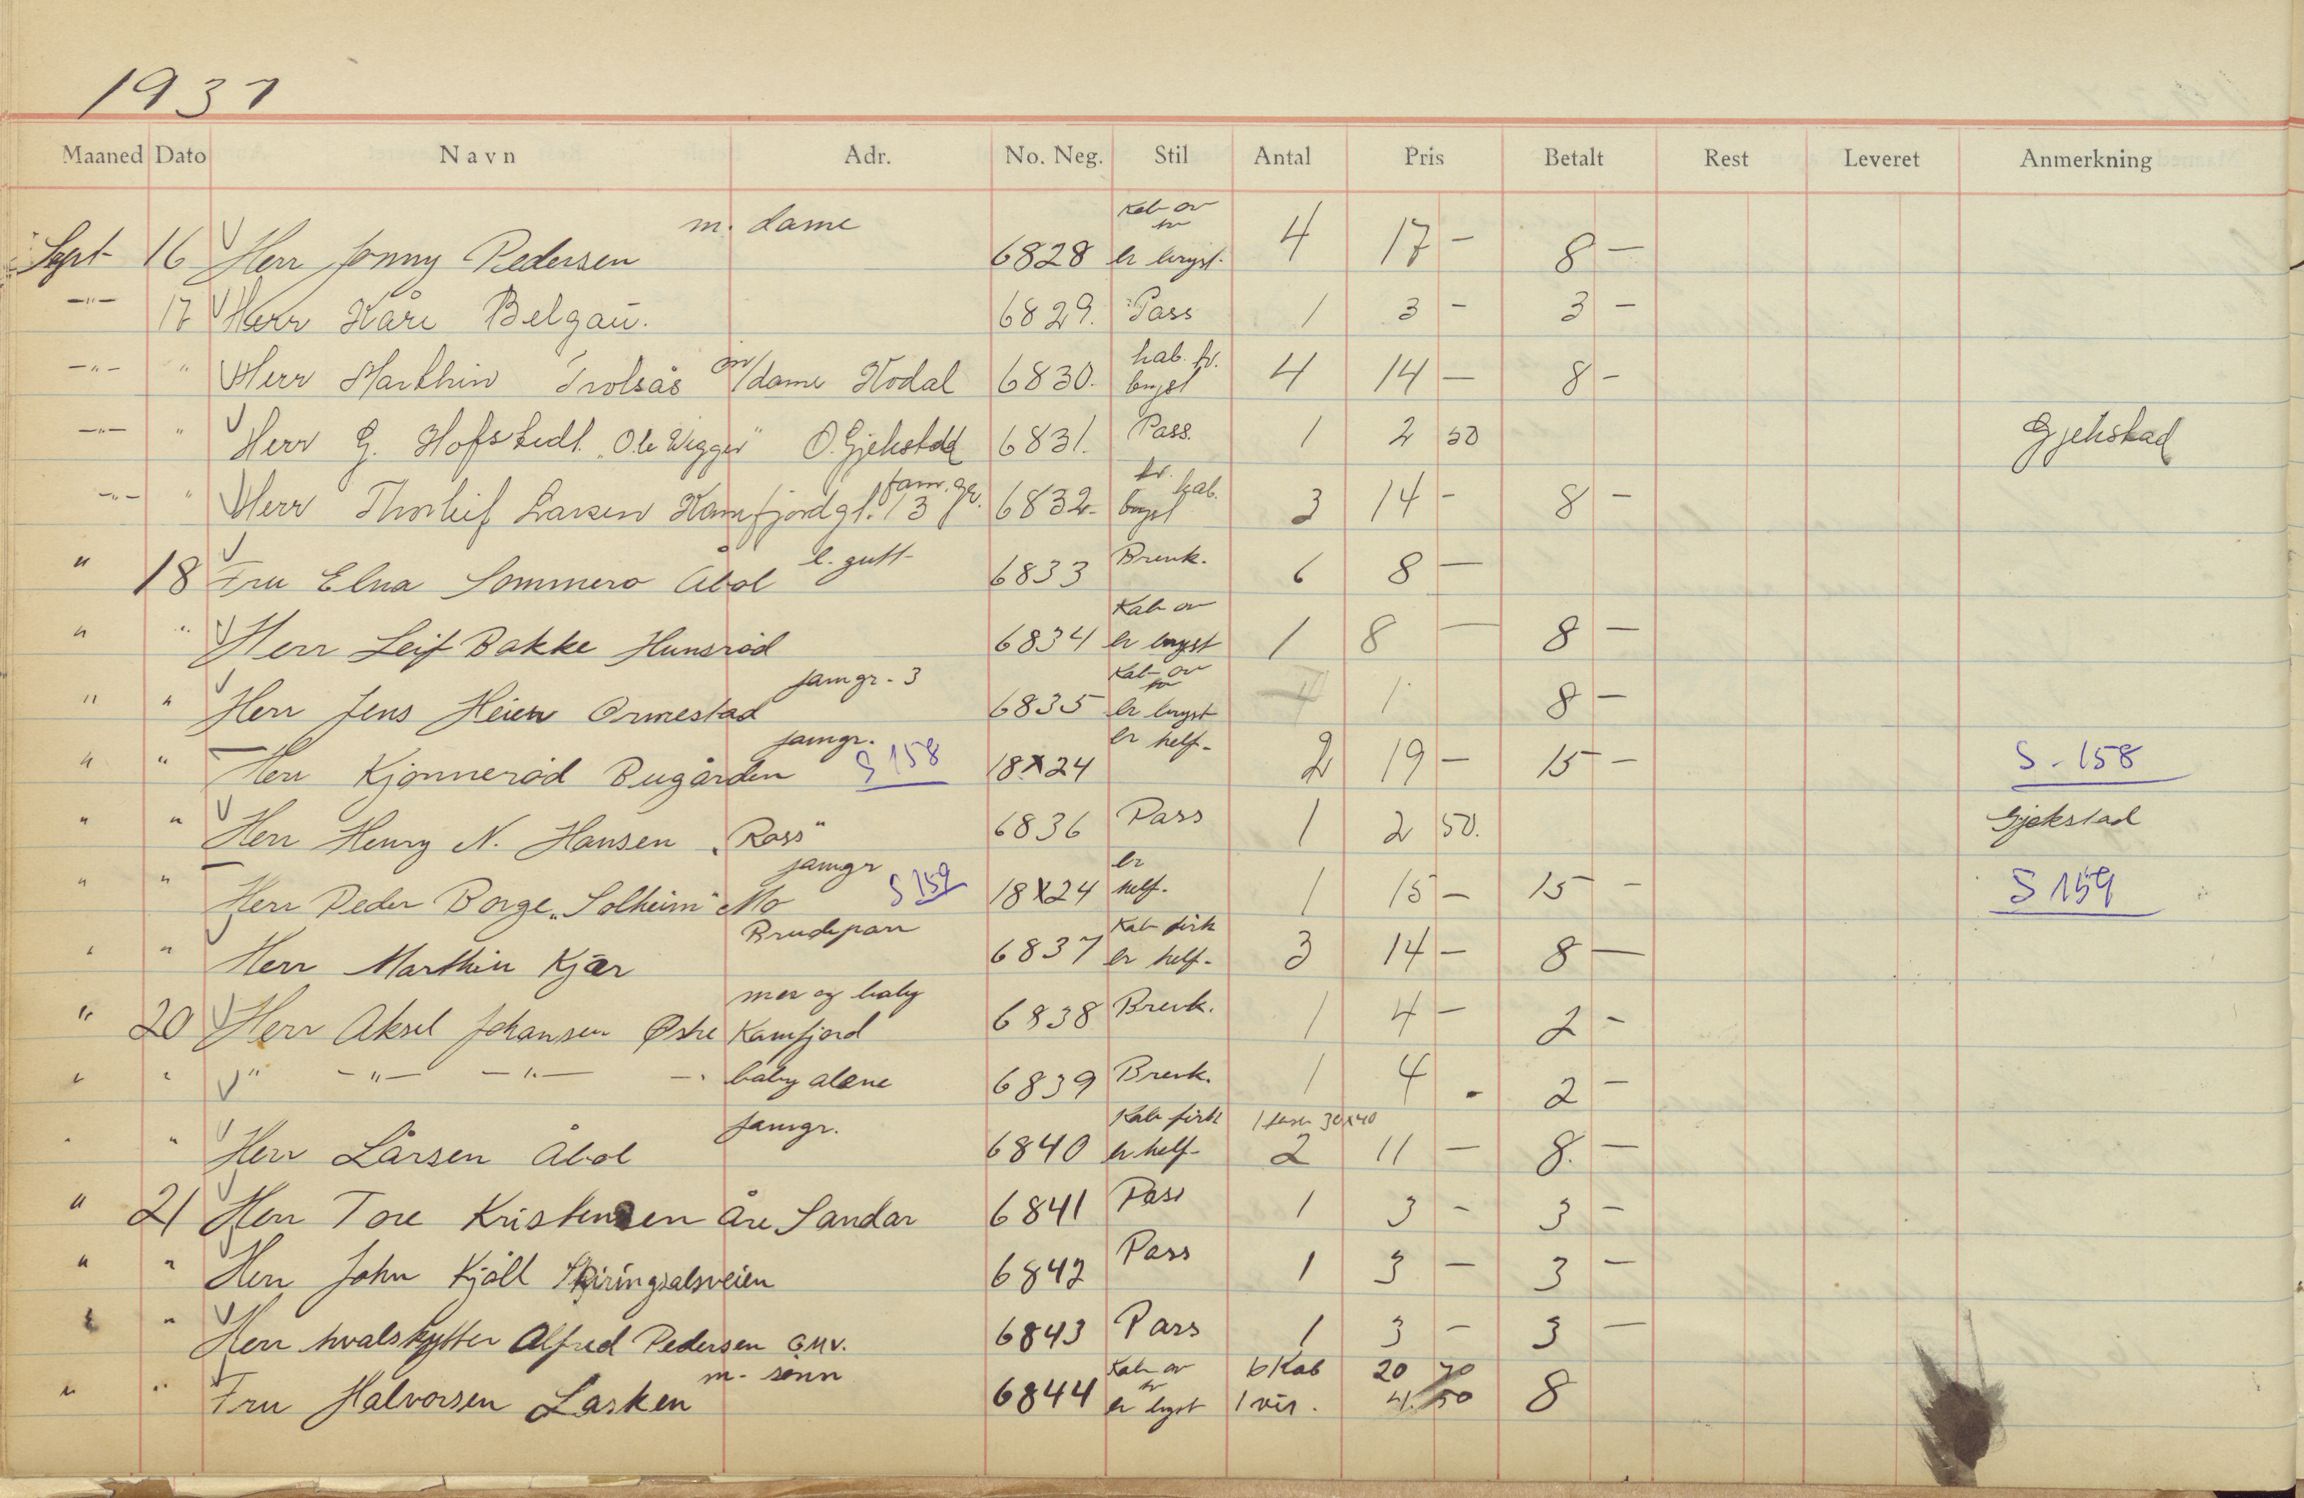 1937
Maaned Dato Navn Adr. No. Neg. Stil Antal Pris Betalt Rest Leveret Anmerkning
m. dame Kab ov
Sept 16 Herr Jonny Pedersen 6828 er bryst. 4 17 - 8 -
-"- 17 Herr Kåre Belgau. 6829. Pass 1 3 - 3 -
-"- " Herr Marthin Trolsås m/dame Kodal 6830. kab. fv. bryst 4 14 - 8 -
-"- " Herr G. Hofstedt. "Ole Wegger" O. Gjekstad 6831. Pass. 1 2 50 Gjekstad
fam. gr. fv. kab.
-"- " Herr Thorleif Larsen Kamfjordgt. 13 6832 bryst 3 14 - 8 -
l. gutt
" 18 Fru Elna Sommero Åbol 6833 Brevk. 6 8 -
Kab ov
" " Herr Leif Bakke Hunsrød 6834 er bryst 1 8 - 8 -
famgr. 3 Kab ov
" " Herr Jens Heien Ormestad 6835 er bryst 4 1 8 -
famgr. er helf.
" " Herr Kjønnerød Bugården S 158 18x24 2 19 - 15 - S - 158
" " Herr Henry N. Hansen "Ross" 6836 Pass 1 2 50. Gjekstad
famgr er
" " Herr Peder Borge "Solheim" Mo S 159 18x24 helf. 1 15 - 15 - S 159
Brudepar Kab firk
" " Herr Marthin Kjær 6837 er helf. 3 14 - 8 -
mor og baby
" 20 Herr Aksel Johansen Østre Kamfjord 6838 Brevk. 1 4 - 2 -
" " " -"- -"- - baby alene 6839 Brevk. 1 4 . 2 -
famgr. Kab firk 1 30x40
" " Herr Larsen Åbol 6840 er helf. 2 11 - 8. -
" 21 Herr Tore Kristensen Åre Sandar 6841 Pass 1 3 - 3 -
" " Herr John Kjøll Skiringsalsveien 6842 Pass 1 3 - 3 -
" " Herr hvalskytter Alfred Pedersen GMV. 6843 Pass 1 3 - 3 -
m. sønn Kab ov 6 Kab 20 70
" " Fru Halvorsen Lasken 6844 er bryst 1 vis. 4. 50 8